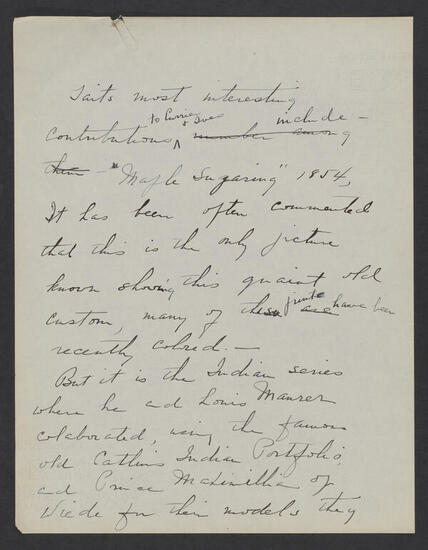 Taits most interesting
to Currier & Ives include -
contributions ^ number among
them - "Maple Sugaring" 1854,
It has been often commented
that this is the only picture
known showing this quaint old
custom, many of these prints are have been
recently colored. -
But it is the Indian series
where he and Louis Maurer
colaborated, using the famous
old Catlins Indian Portfolio,
and Prince Maximillian of
Wiede for their models they